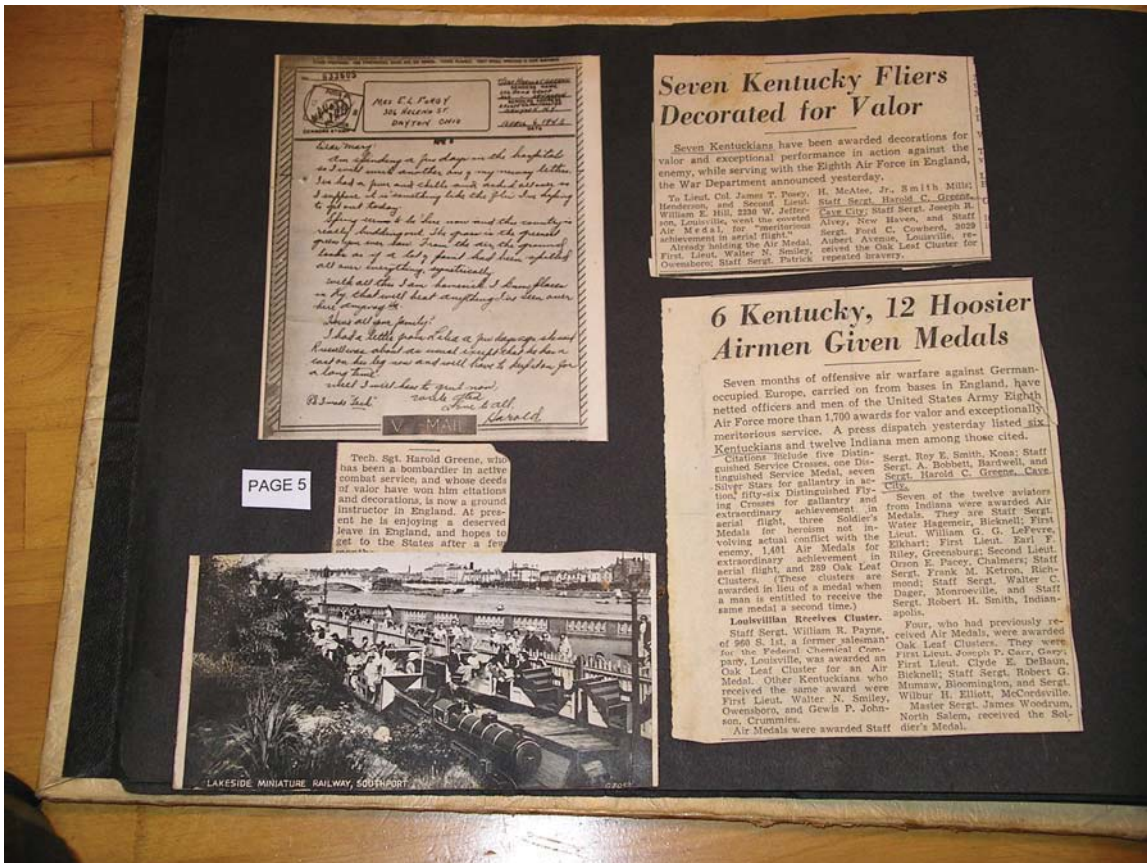 No. 533605
MRS E.L. FURDY
306 HELENA ST.
DAYTON OHIO
CENSOR'S STAMP
SENDER'S NAME
SENDER'S ADDRESS
DATE
Dear Mary:
Am spending a few days in the hospital
so I will write another one of my newsy letters.
I've had a fever and chills and ached all over so
I suppose it is something like the flu. I'm hoping
to get out today.
Spring seems to be here now and this country is
really budding out. The grass is the greenest
green you ever saw. From the air the ground
looks as if a lot of paint had been spilled
all over everything,
With all this I am maverick. I know places
in Ky. that will beat anything I've seen over
here anyway.
How's all your family?
I had a letter from Lelia a few days ago she said
Russell was about as usual except that he has a
cast on his leg now and will have to keep it on for
a long time.
Well I will have to quit now
write often
Love to all,
Harold
V-MAIL
PAGE 5
Tech. Sgt. Harold Greene, who
has been a bombardier in active
combat service, and whose deeds
of valor have won him citations
and decorations, is now a ground
instructor in England. At pres-
ent he is enjoying a deserved
leave in England, and hopes to
get to the States after a few
LAKESIDE MINIATURE RAILWAY, SOUTHPORT
Seven Kentucky Fliers
Decorated for Valor
Seven Kentuckians have been awarded decorations for
valor and exceptional performance in action against the
enemy, while serving with the Eighth Air Force in England,
the War Department announced yesterday.
To Lieut. Col. James T. Posey,
Henderson, and Second Lieut.
William E. Hill, 2230 W. Jeffer-
son, Louisville, went the coveted
Air Medal, for "meritorious
achievement in aerial flight."
Already holding the Air Medal,
First. Lieut. Walter N. Smiley,
Owensboro; Staff Sergt. Patrick
H. McAtee, Jr., Smith Mills;
Staff Sergt. Harold C. Greene,
Cave City; Staff Sergt. Joseph R.
Alvey, New Haven, and Staff
Sergt. Ford C. Cowherd, 3029
Aubert Avenue, Louisville, re-
ceived the Oak Leaf Cluster for
repeated bravery.
6 Kentucky, 12 Hoosier
Airmen Given Medals
Seven months of offensive air warfare against German-
occupied Europe, carried on from bases in England, have
netted officers and men of the United States Army Eighth
Air Force more than 1,700 awards for valor and exceptionally
meritorious service. A press dispatch yesterday listed six
Kentuckians and twelve Indiana men among those cited.
Citations include five Distin-
guished Service Crosses, one Dis-
tinguished Service Medal, seven
Silver Stars for gallantry in ac-
tion, fifty-six Distinguished Fly-
ing Crosses for gallantry and
extraordinary achievement in
aerial flight, three Soldier's
Medals for heroism not in-
volving actual conflict with the
enemy, 1,401 Air Medals for
extraordinary achievement in
aerial flight, and 289 Oak Leaf
Clusters. (These clusters are
awarded in lieu of a medal when
a man is entitled to receive the
same medal a second time.)
Louisvillian Receives Cluster.
Staff Sergt. William R. Payne,
of 960 S. 1st, a former salesman
for the Federal Chemical Com-
pany, Louisville, was awarded an
Oak Leaf Cluster for an Air
Medal. Other Kentuckians who
received the same award were
First Lieut. Walter N. Smiley,
Owensboro, and Gewis P. John-
son, Crummies.
Air Medals were awarded Staff
Sergt. Roy E. Smith, Kona; Staff
Sergt. A. Bobbett, Bardwell, and
Sergt. Harold C. Greene, Cave
City.
Seven of the twelve aviators
from Indiana were awarded Air
Medals. They are Staff Sergt.
Water Hagemeir, Bicknell; First
Lieut. William G. G. LeFevre,
Elkhart; First Lieut. Earl F.
Riley, Greensburg; Second Lieut.
Orson E. Pacey, Chalmers; Staff
Sergt. Frank M. Ketron, Rich-
mond; Staff Sergt. Walter C.
Dager, Monroeville, and Staff
Sergt. Robert H. Smith, Indian-
apolis.
Four, who had previously re-
ceived Air Medals, were awarded
Oak Leaf Clusters. They were
First Lieut. Joseph P. Carr, Gary;
First Lieut. Clyde E. DeBaun,
Bicknell; Staff Sergt. Robert G.
Mumaw, Bloomington, and Sergt.
Wilbur H. Elliott, McCordsville.
Master Sergt. James Woodrum,
North Salem, received the Sol-
dier's Medal.